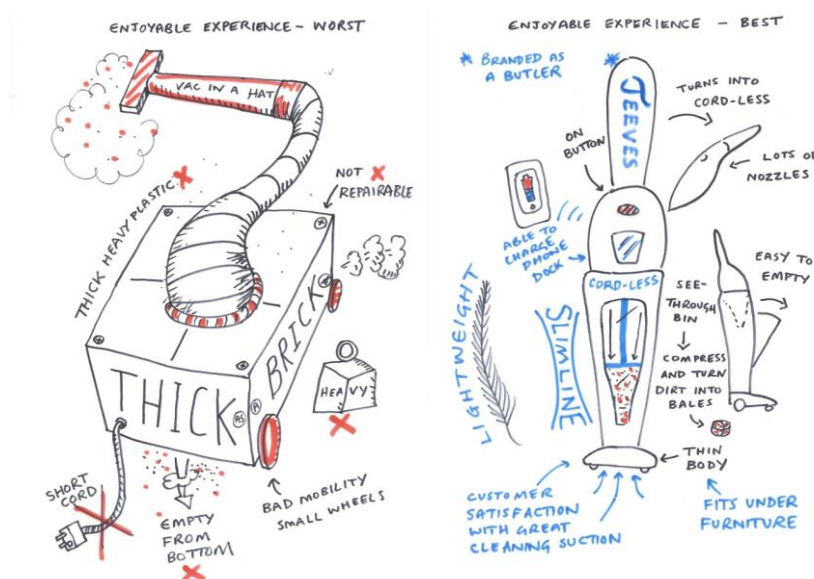 ENJOYABLE EXPERIENCE - WORST
VAC IN A HAT
THICK HEAVY PLASTIC
NOT
REPAIRABLE
THICK
AS
A
BRICK
HEAVY
SHORT
CORD
EMPTY
FROM
BOTTOM
BAD MOBILITY
SMALL WHEELS
ENJOYABLE EXPERIENCE - BEST
* BRANDED AS
A BUTLER
JEEVES
TURNS INTO
CORD-LESS
ON
BUTTON
LOTS OF
NOZZLES
ABLE TO
CHARGE
PHONE
DOCK
EASY TO
EMPTY
CORD-LESS
SEE-
THROUGH
BIN
LIGHTWEIGHT
SLIMLINE
COMPRESS
AND TURN
DIRT INTO
BALES
THIN
BODY
CUSTOMER
SATISFACTION
WITH GREAT
CLEANING SUCTION
FITS UNDER
FURNITURE